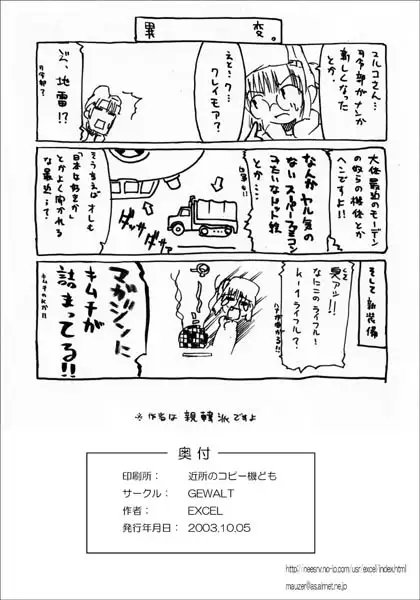 異 変。
スルコさん…
司令部がナンか
新しくなった
とか。
えと・ク…
クレイモア?
ジ、地雷!?
司令部?
大体最近のモーデン
の奴らの機体とか
ヘンですよ!!
なんか ヤル気の
ない スーパーファミコン
みたいなドット絵
とか…
ダッサダッサァ
そうきえば オレも
「日本は好きか」
とかよく聞かれる
な最近…て
そして 新装備
くさ
臭アッ!!
なにこのライフル!
Kー1ライフル?
マガジンに
キムチが
詰まってる!!
キムチのKか!!
※作者は 親韓派ですよ
奥 付
印刷所: 近所のコピー機ども
サークル: GEWALT
作者: EXCEL
発行年月日: 2003.10.05
http://neesrv.no-ip.com/usr/excel/index.html
mauzer@as.airnet.ne.jp